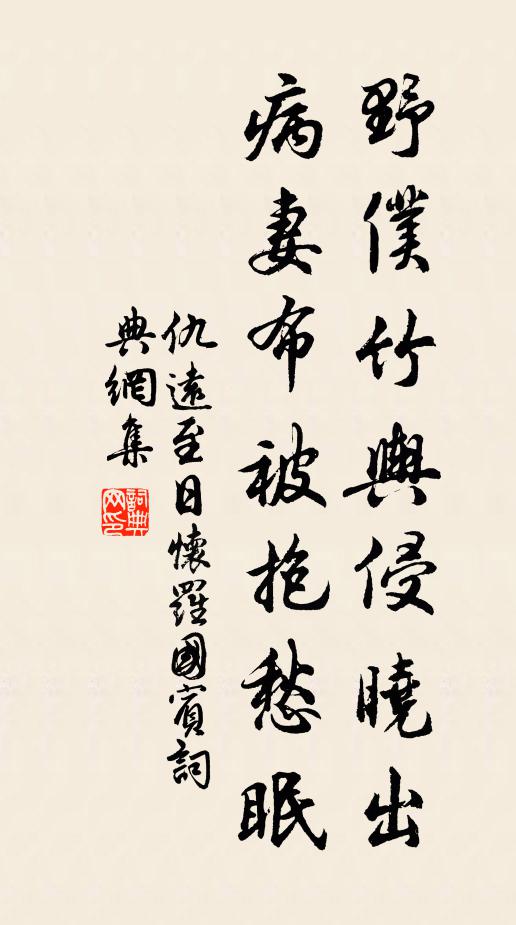 野僕竹輿侵曉出
病妻布被抱愁眠
仇遠至日懷羅國賓詞
典網集
詞典网印